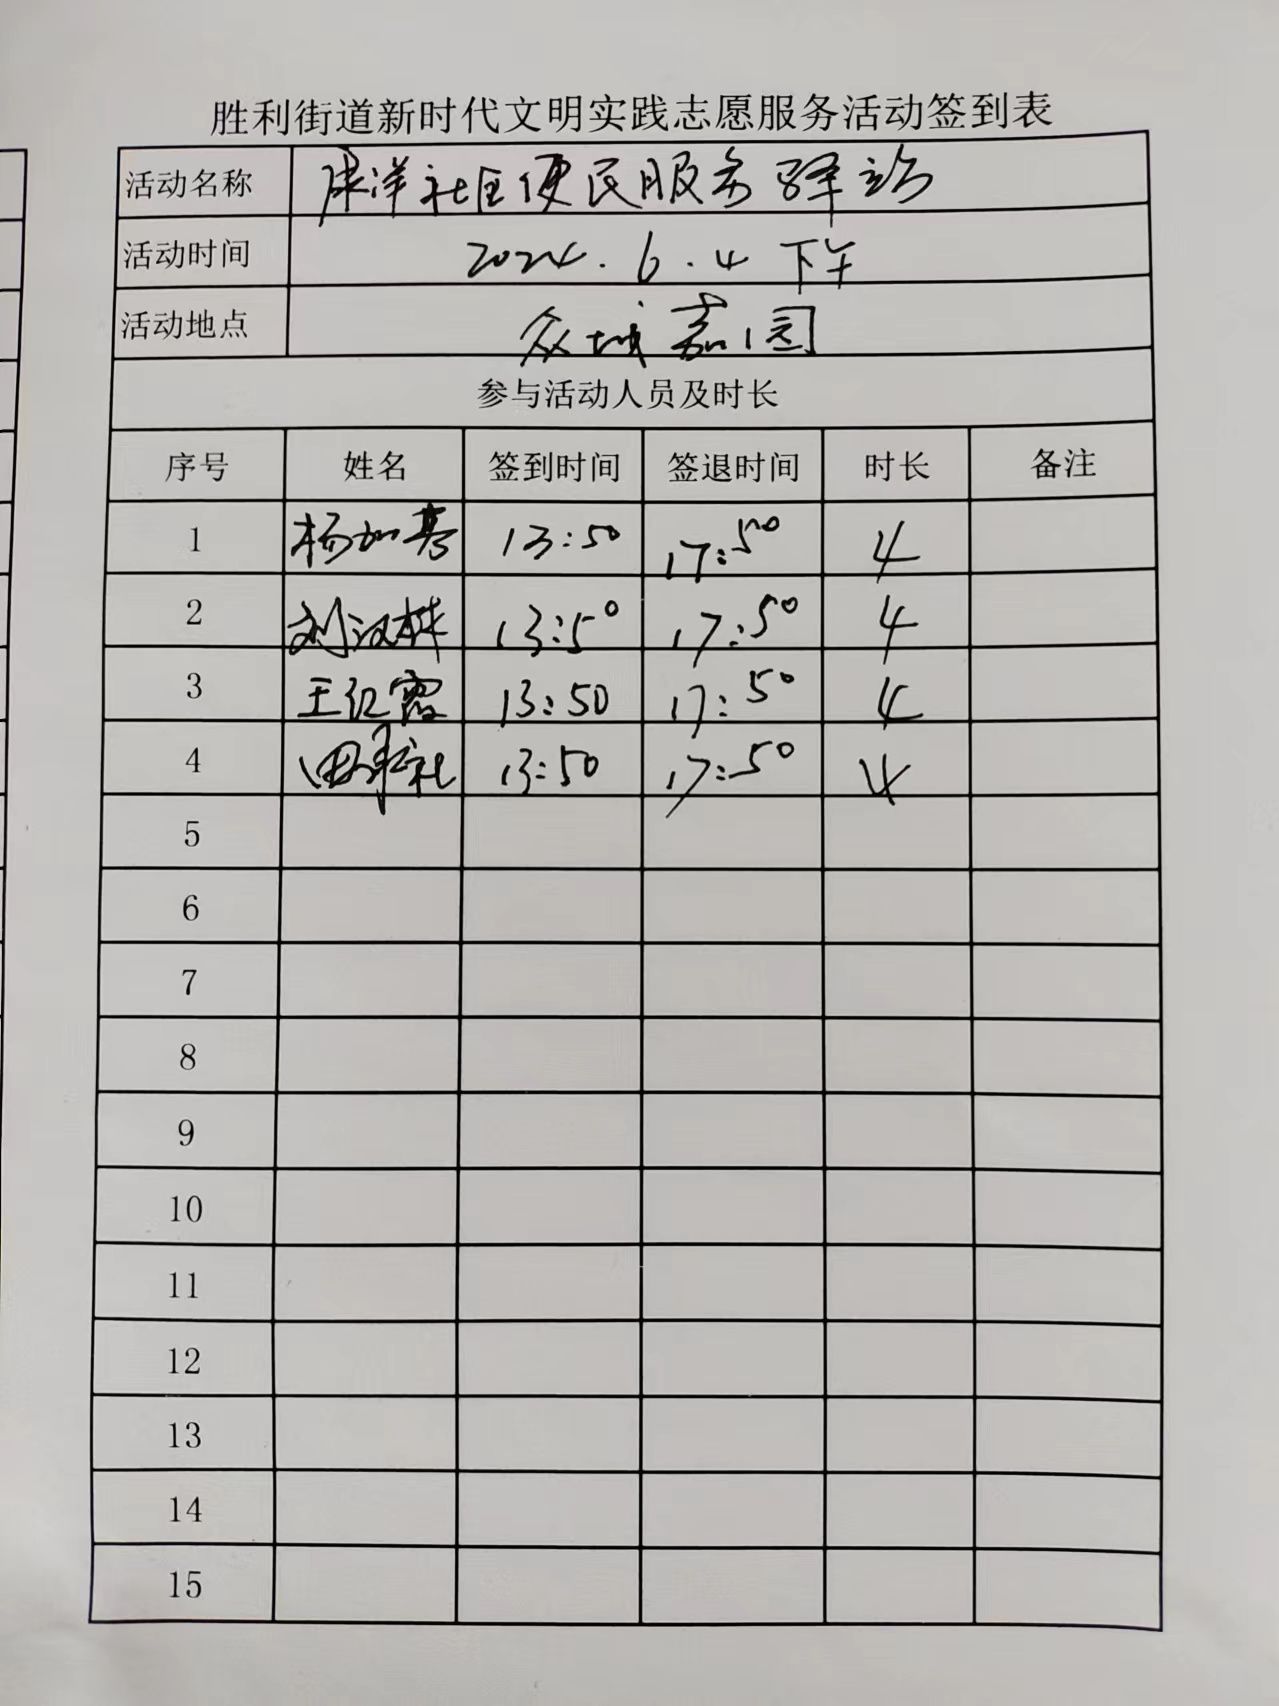 胜利街道新时代文明实践志愿服务活动签到表
活动名称 康洋社区便民服务驿站
活动时间 2024.6.4 下午
活动地点 众城嘉园
参与活动人员及时长
序号 姓名 签到时间 签退时间 时长 备注
1 杨如春 13:50 17:50 4
2 刘汉林 13:50 17:50 4
3 王红霞 13:50 17:50 4
4 13:50 17:50 4
5
6
7
8
9
10
11
12
13
14
15